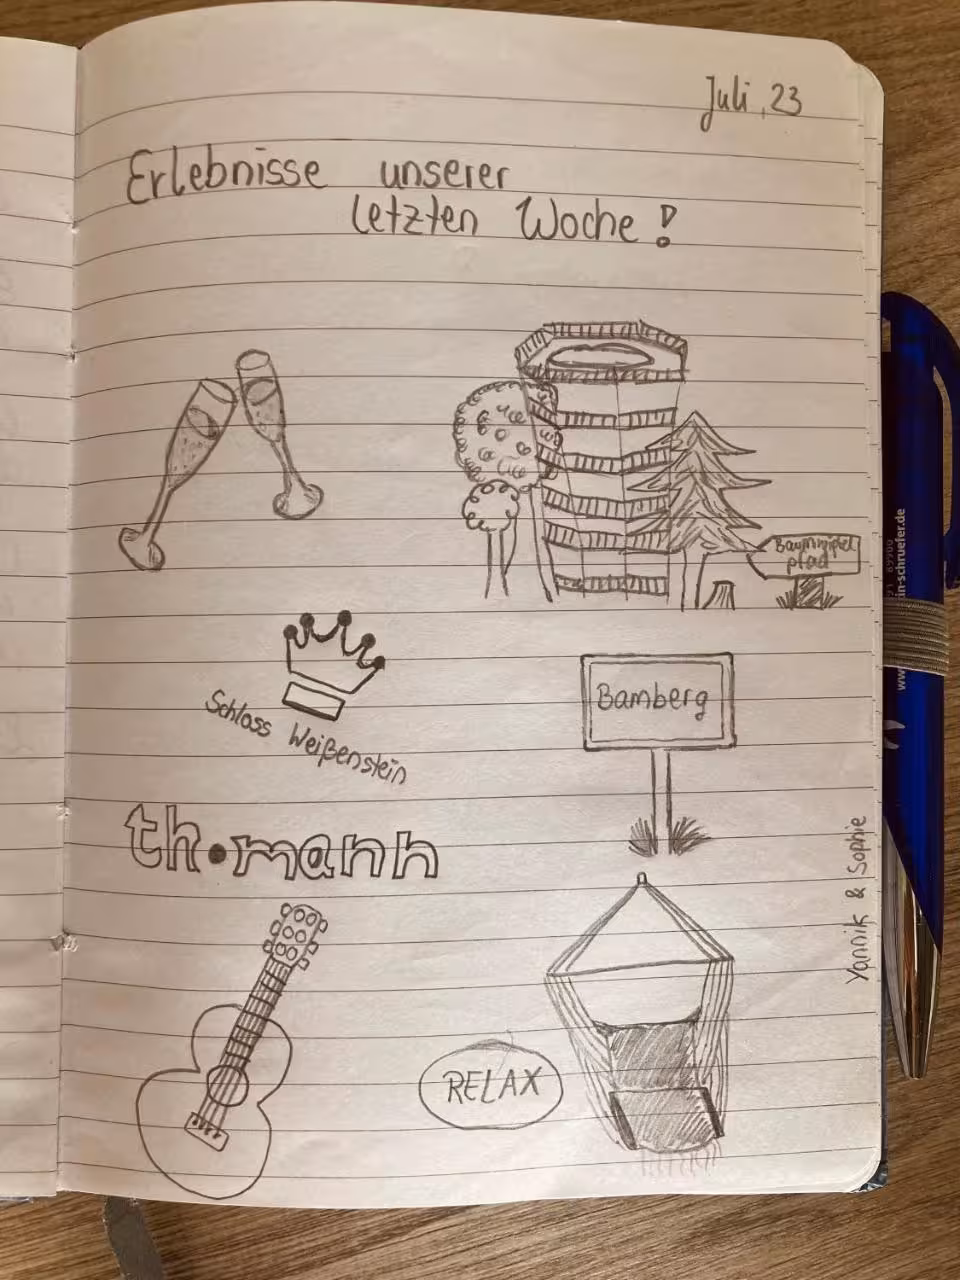 Juli, 23
Erlebnisse unserer
letzten Woche!
Baumwipfel
pfad
Schloss Weißenstein
Bamberg
th•mann
RELAX
Yannik & Sophie
in-schruefer.de